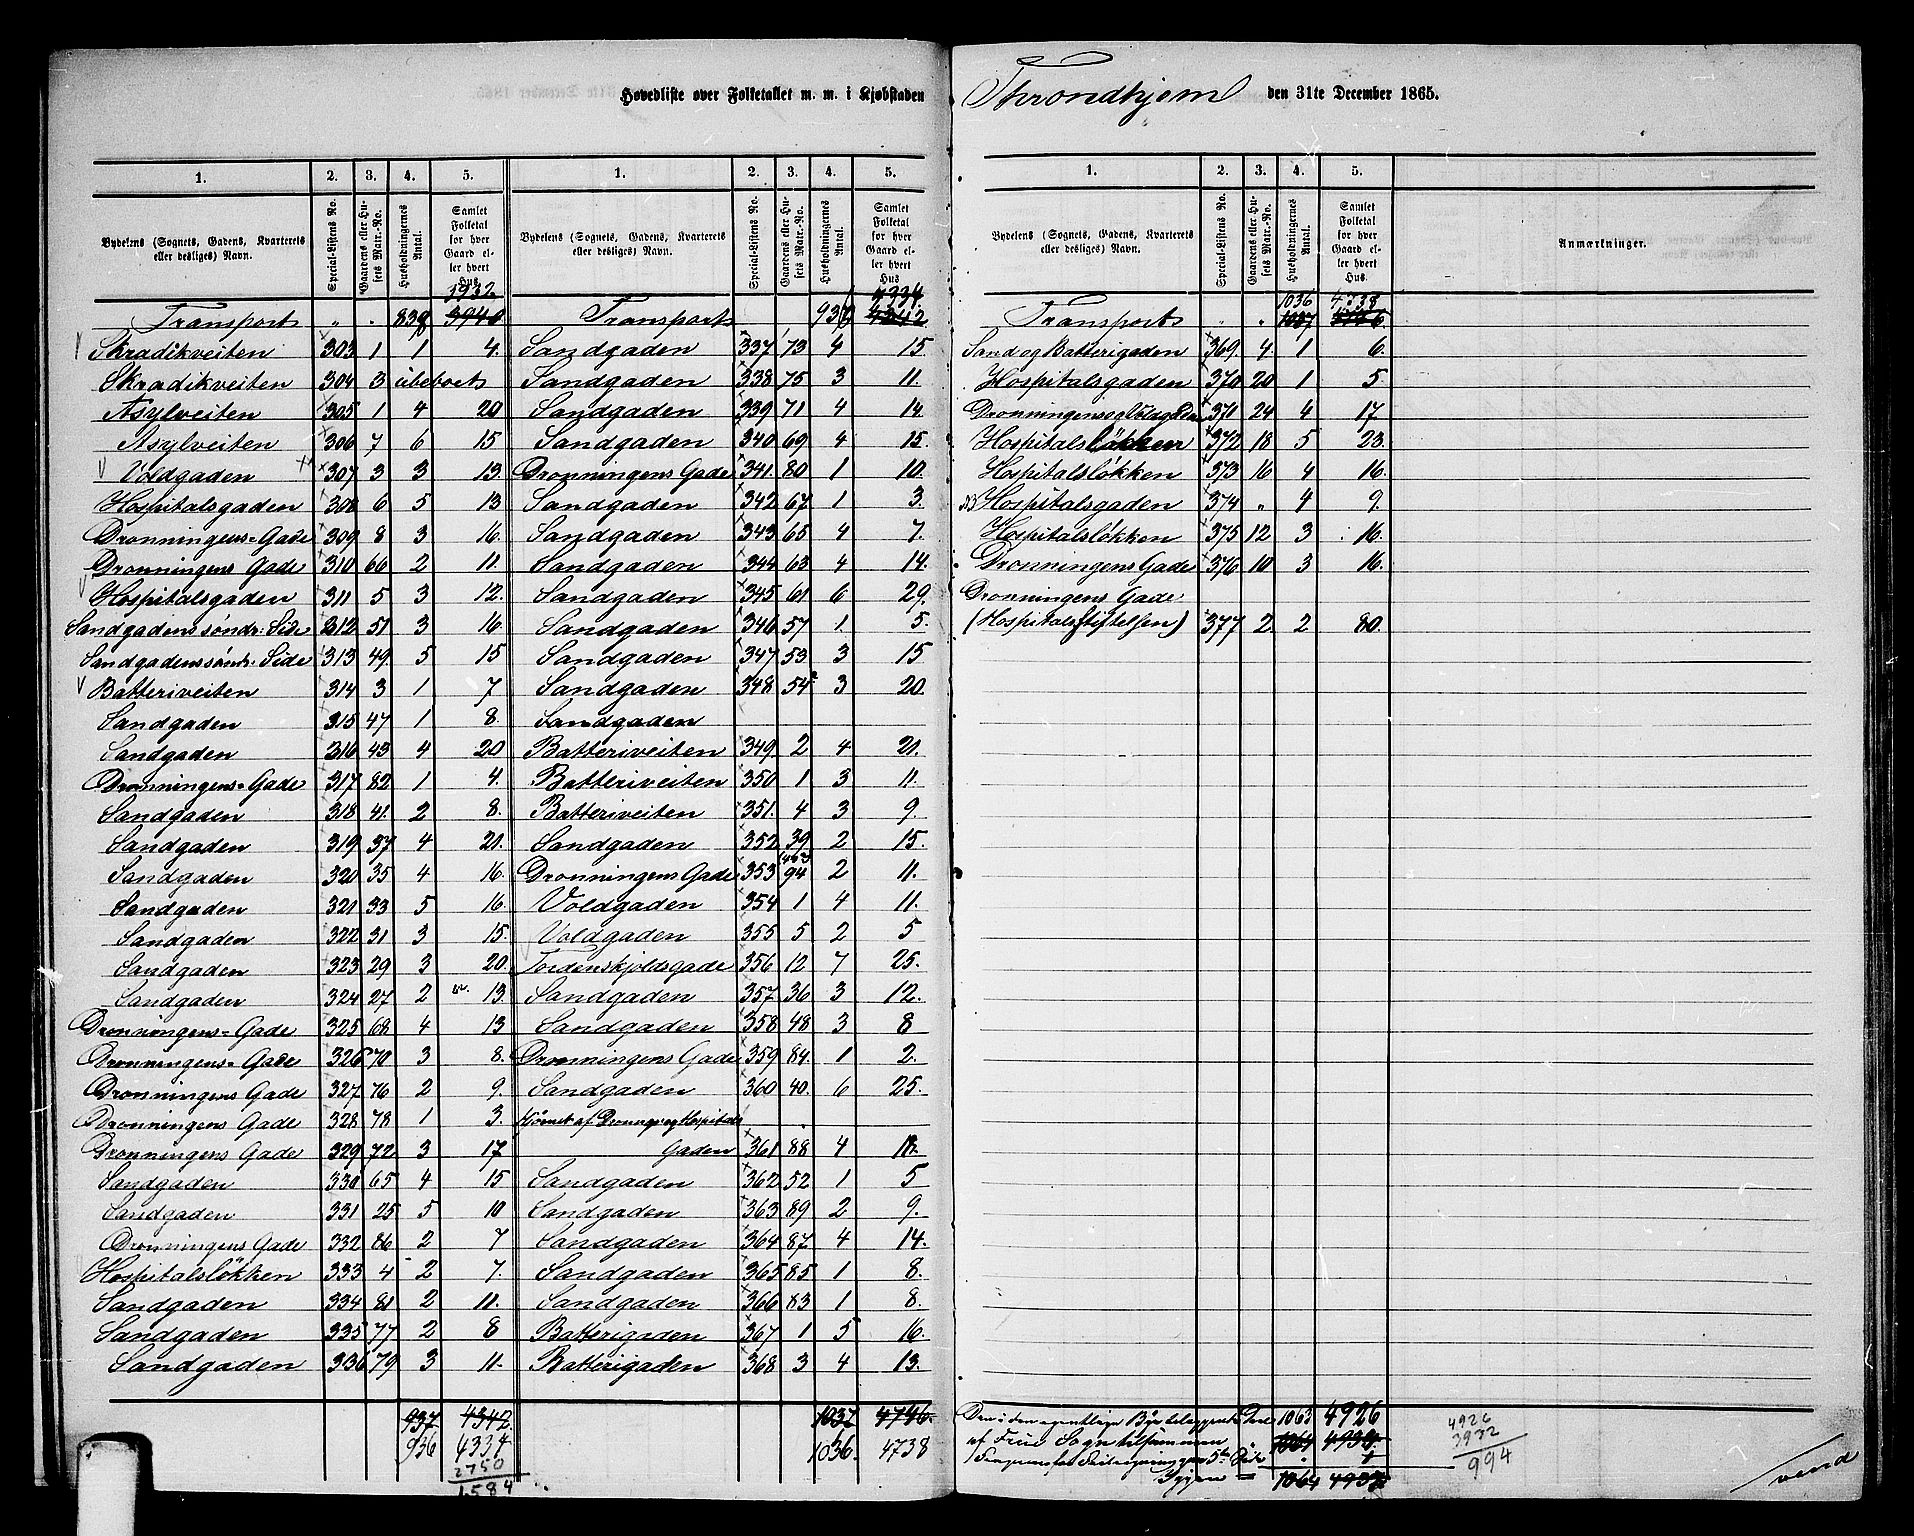 Hovedliste over Folketallet m. m. i Kjøbstaden Throndhjem den 31te December 1865.
1. 2. 3. 4. 5.
Bydelens (Sognets, Gadens, Kvarterets eller desliges) Navn. Special-Listens No. Gaardens eller Husets Matr.-No. Husholdningernes Antal. Samlet Folketal for hver Gaard eller hvert Hus.
1932
Transport „ „ 839 3940
Skradikveiten 303 1 1 4.
Skradikveiten 304 3 ubeboet
Asylveiten 305 1 4 20
Asylveiten 306 7 6 15
Voldgaden 307 3 3 13.
Hospitalsgaden 308 6 5 13
Dronningens-Gade 309 8 3 16.
Dronningens Gade 310 66 2 11.
Hospitalsgaden 311 5 3 12.
Sandgadens söndr. Side 312 51 3 16
Sandgadens söndr. Side 313 49 5 15
Batteriveiten 314 3 1 7
Sandgaden 315 47 1 8.
Sandgaden 316 43 4 20
Dronningens-Gade 317 82 1 4.
Sandgaden 318 41. 2 8.
Sandgaden 319 37 4 21.
Sandgaden 320 35 4 16.
Sandgaden 321 33 5 16.
Sandgaden 322 31 3 15.
Sandgaden 323 29 3 20.
Sandgaden 324 27 2 13.
Dronningens-Gade 325 68 4 13
Dronningens-Gade 326 70 3 8.
Dronningens Gade 327 76 2 9.
Dronningens Gade 328 78 1 3.
Dronningens Gade 329 72 3 17
Sandgaden 330 65 4 15
Sandgaden 331 25 5 10
Dronningens Gade 332 86 2 7
Hospitalslökken 333 4 2 7.
Sandgaden 334 81 2 11.
Sandgaden 335 77 2 8
Sandgaden 336 79 3 11.
937 4342
936 4334
2750
1584
1. 2. 3. 4. 5.
Bydelens (Sognets, Gadens, Kvarterets eller desliges) Navn. Special-Listens No. Gaardens eller Husets Matr.-No. Husholdningernes Antal. Samlet Folketal for hver Gaard eller hvert Hus
4334.
Transport 936 4342
Sandgaden 337 73 4 15.
Sandgaden 338 75 3 11.
Sandgaden 339 71 4 14.
Sandgaden 340 69 4 15.
Dronningens Gade 341. 80 1 10.
Sandgaden 342 67 1 3.
Sandgaden 343 65 4 7.
Sandgaden 344 63 4 14.
Sandgaden 345 61 6 29.
Sandgaden 346 57 1. 5.
Sandgaden 347 53 3 15
Sandgaden 348 54 3 20.
Sandgaden
Batteriveiten 349. 2 4 21.
Batteriveiten 350 1 3 11.
Batteriveiten 351. 4 3 9.
Sandgaden 352 39 2 15.
Dronningens Gade 353 94 2 11.
Voldgaden 354 1 4 11.
Voldgaden 355 5 2 5
Tordenskjoldsgade 356 12 7 25.
Sandgaden 357 36 3 12.
Sandgaden 358 48 3 8
Dronningens Gade 359 84. 1 2.
Sandgaden 360 40. 6 25.
Hjörnet af Dronngs og Hospitals
Gaden 361 88 4 12.
Sandgaden 362 52 1 5
Sandgaden 363 89 2 9.
Sandgaden 364 87 4 14.
Sandgaden 365 85 1 8.
Sandgaden 366 83 1 8.
Batterigaden 367 1 5 16.
Batterigaden 368 3 4 13.
1037 4746.
1036. 4738
1. 2. 3. 4. 5.
Bydelens (Sognets, Gadens, Kvarterets eller desliges) Navn. Special-Listens No. Gaardens eller Husets Matr.-No. Husholdningernes Antal. Samlet Folketal for hver Gaard eller hvert Hus. Anmærkninger.
1036 4738
Transport „ „ 1037 4746
Sand og Batterigaden 369. 4 1 6.
Hospitalsgaden 370 20 1 5
371 24 4 17
Hospitalslökken 372 18 5 23.
Hospitalslökken 373 16 4 16.
Hospitalsgaden 374 „ 4 9.
Hospitalslökken 375 12 3 16.
Dronningens Gade 376 10 3 16.
Dronningens Gade
(Hospitalsstiftelsen) 377 2 2 80.
Den i den egentlige By beliggende Deel 1063 4926
af Frue Sogn tilsammen 1064 4934
1064 4937
4926
3932
994
vend